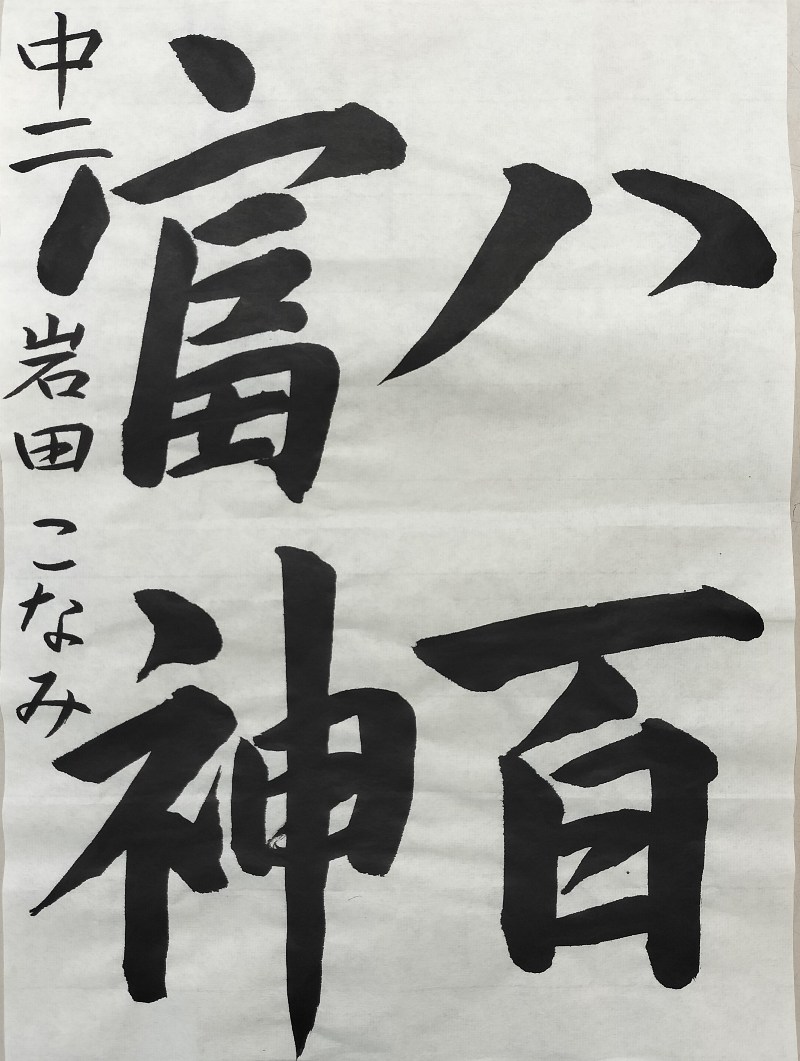 八百
富神
中二 岩田 こなみ